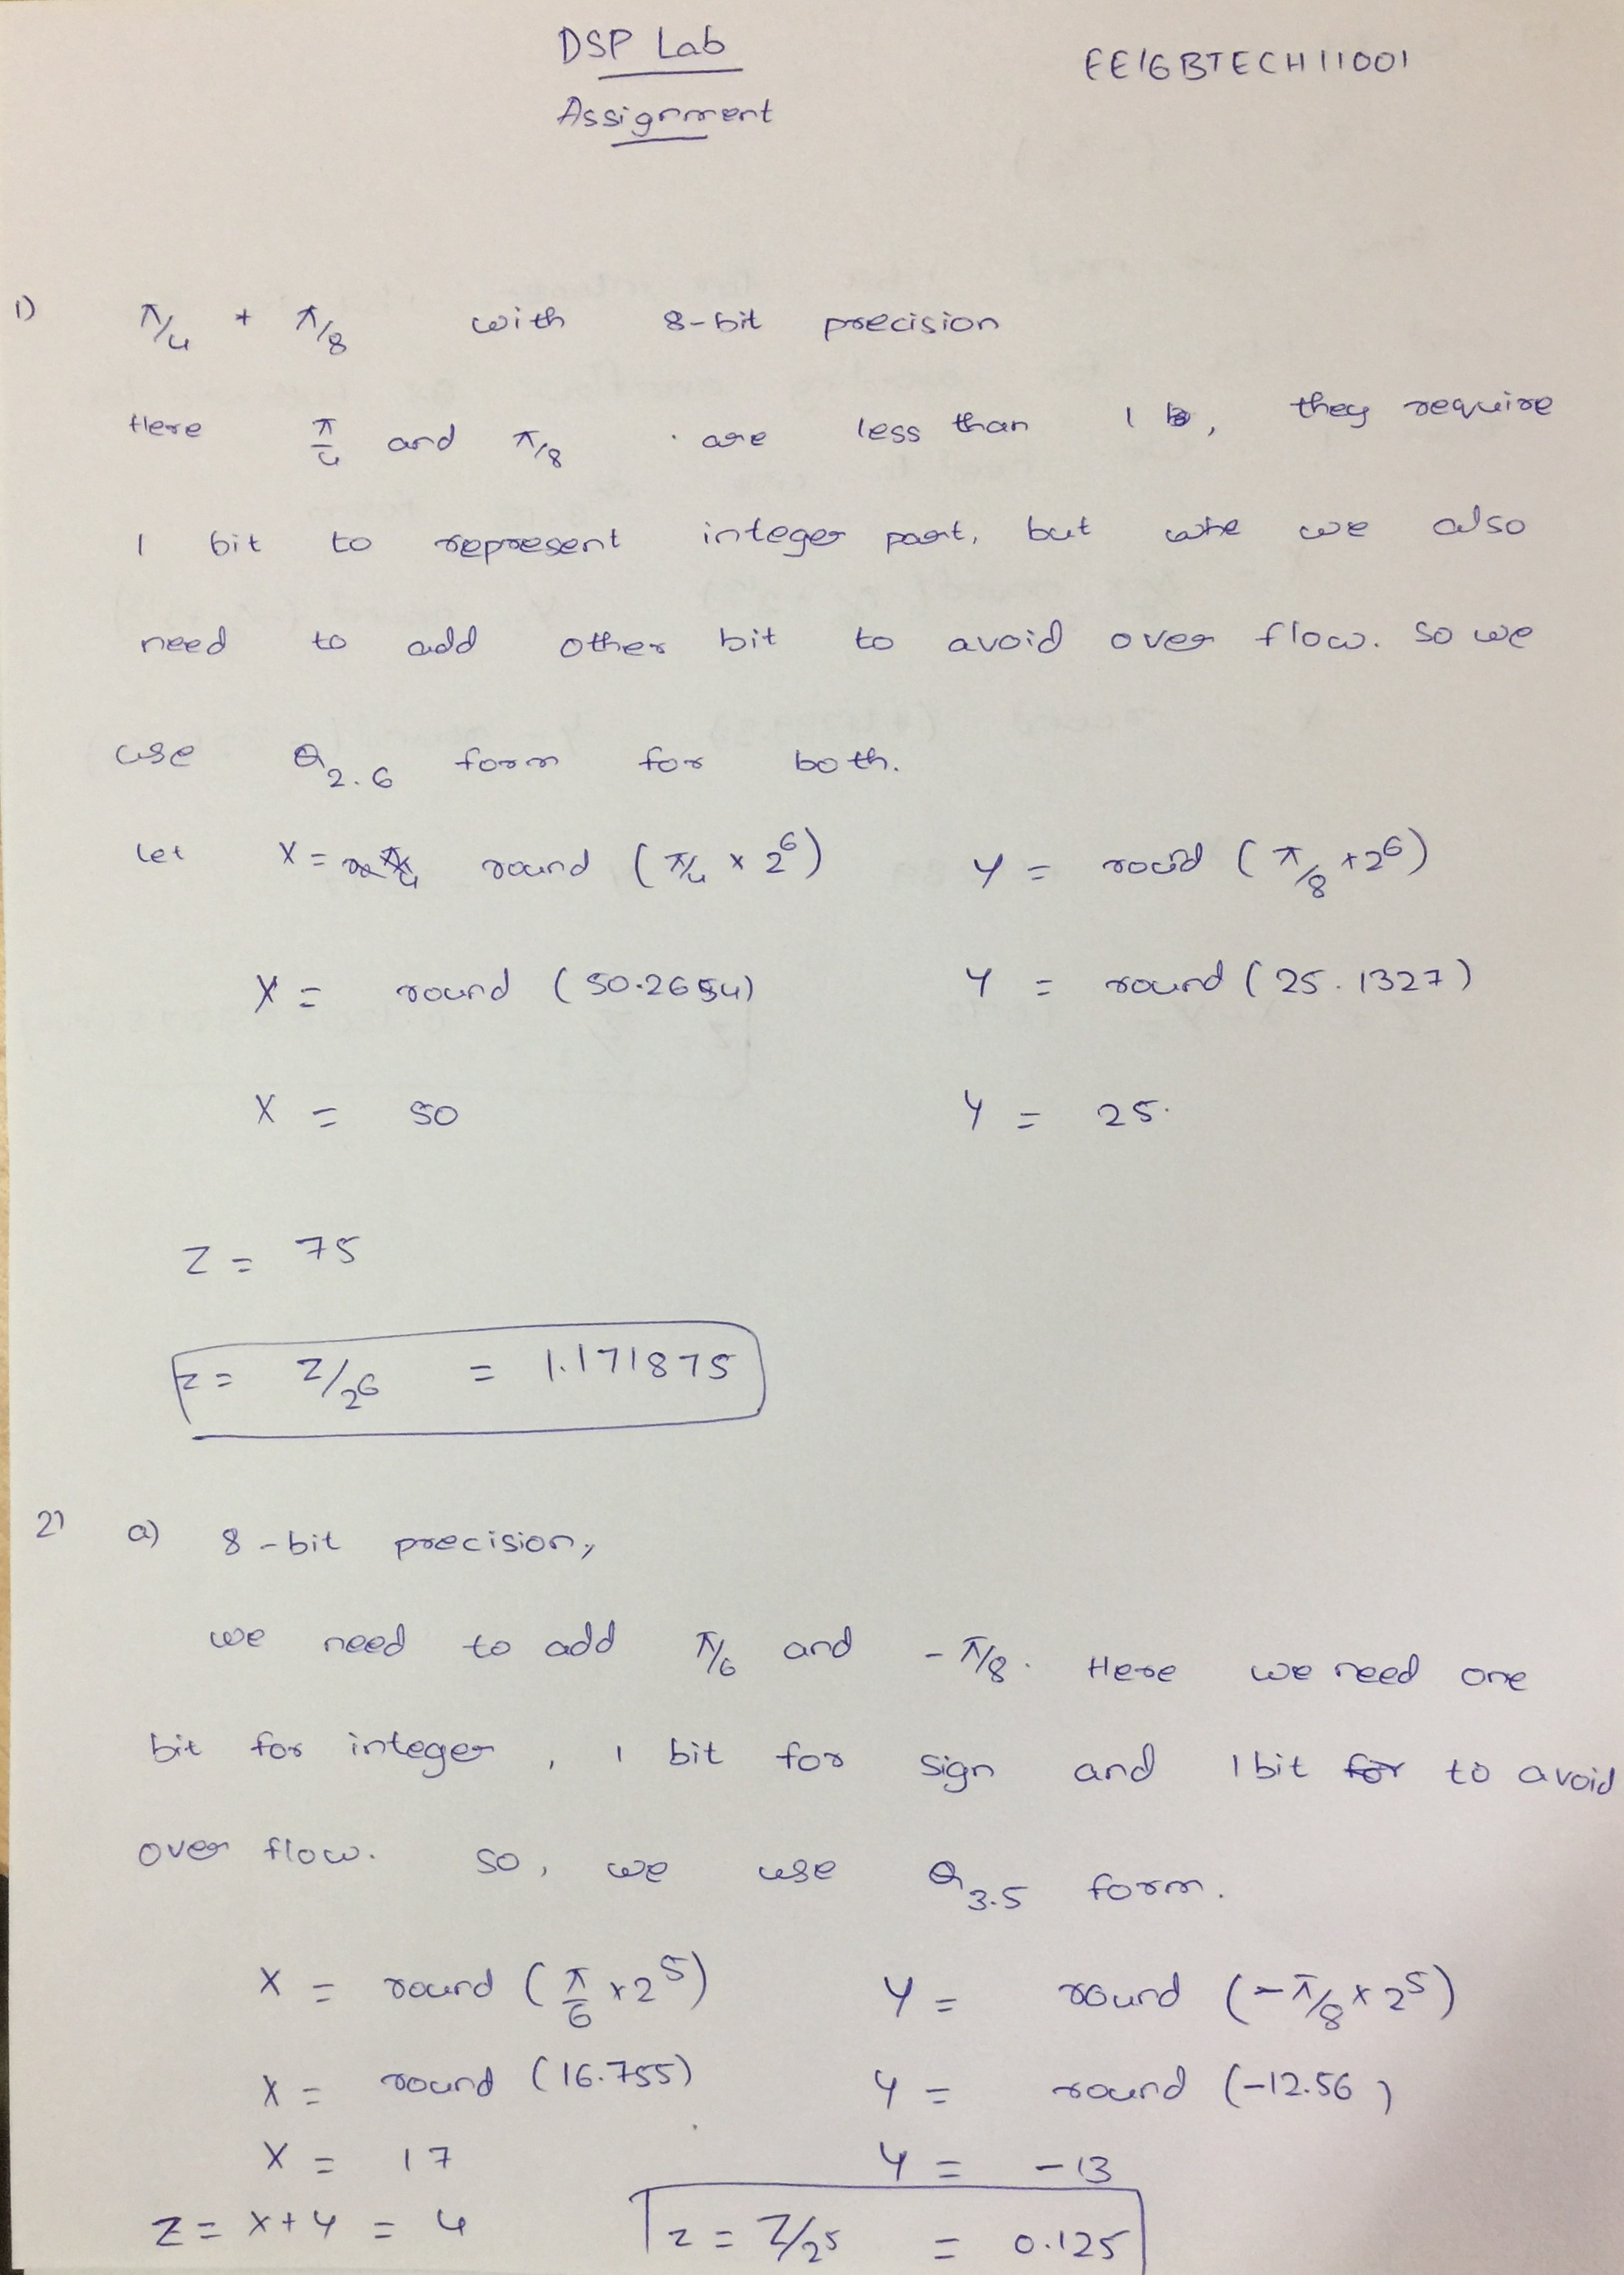 DSP Lab
EE16BTECH11001
Assignment
1) π/4 + π/8 with 8-bit precision
Here π/4 and π/8 are less than 1, they require
1 bit to represent integer part, but we also
need to add other bit to avoid over flow. So we
use Q2.6 form for both.
Let X = round (π/4 × 2^6) Y = round (π/8 × 2^6)
X = round (50.2654) Y = round (25.1327)
X = 50 Y = 25.
Z = 75
z = Z/2^6 = 1.171875
2) a) 8-bit precision,
we need to add π/6 and -π/8. Here we need one
bit for integer, 1 bit for sign and 1 bit for to avoid
over flow. So, we use Q3.5 form.
X = round (π/6 × 2^5) Y = round (-π/8 × 2^5)
X = round (16.755) Y = round (-12.56)
X = 17 Y = -13
Z = X + Y = 4 z = Z/2^5 = 0.125